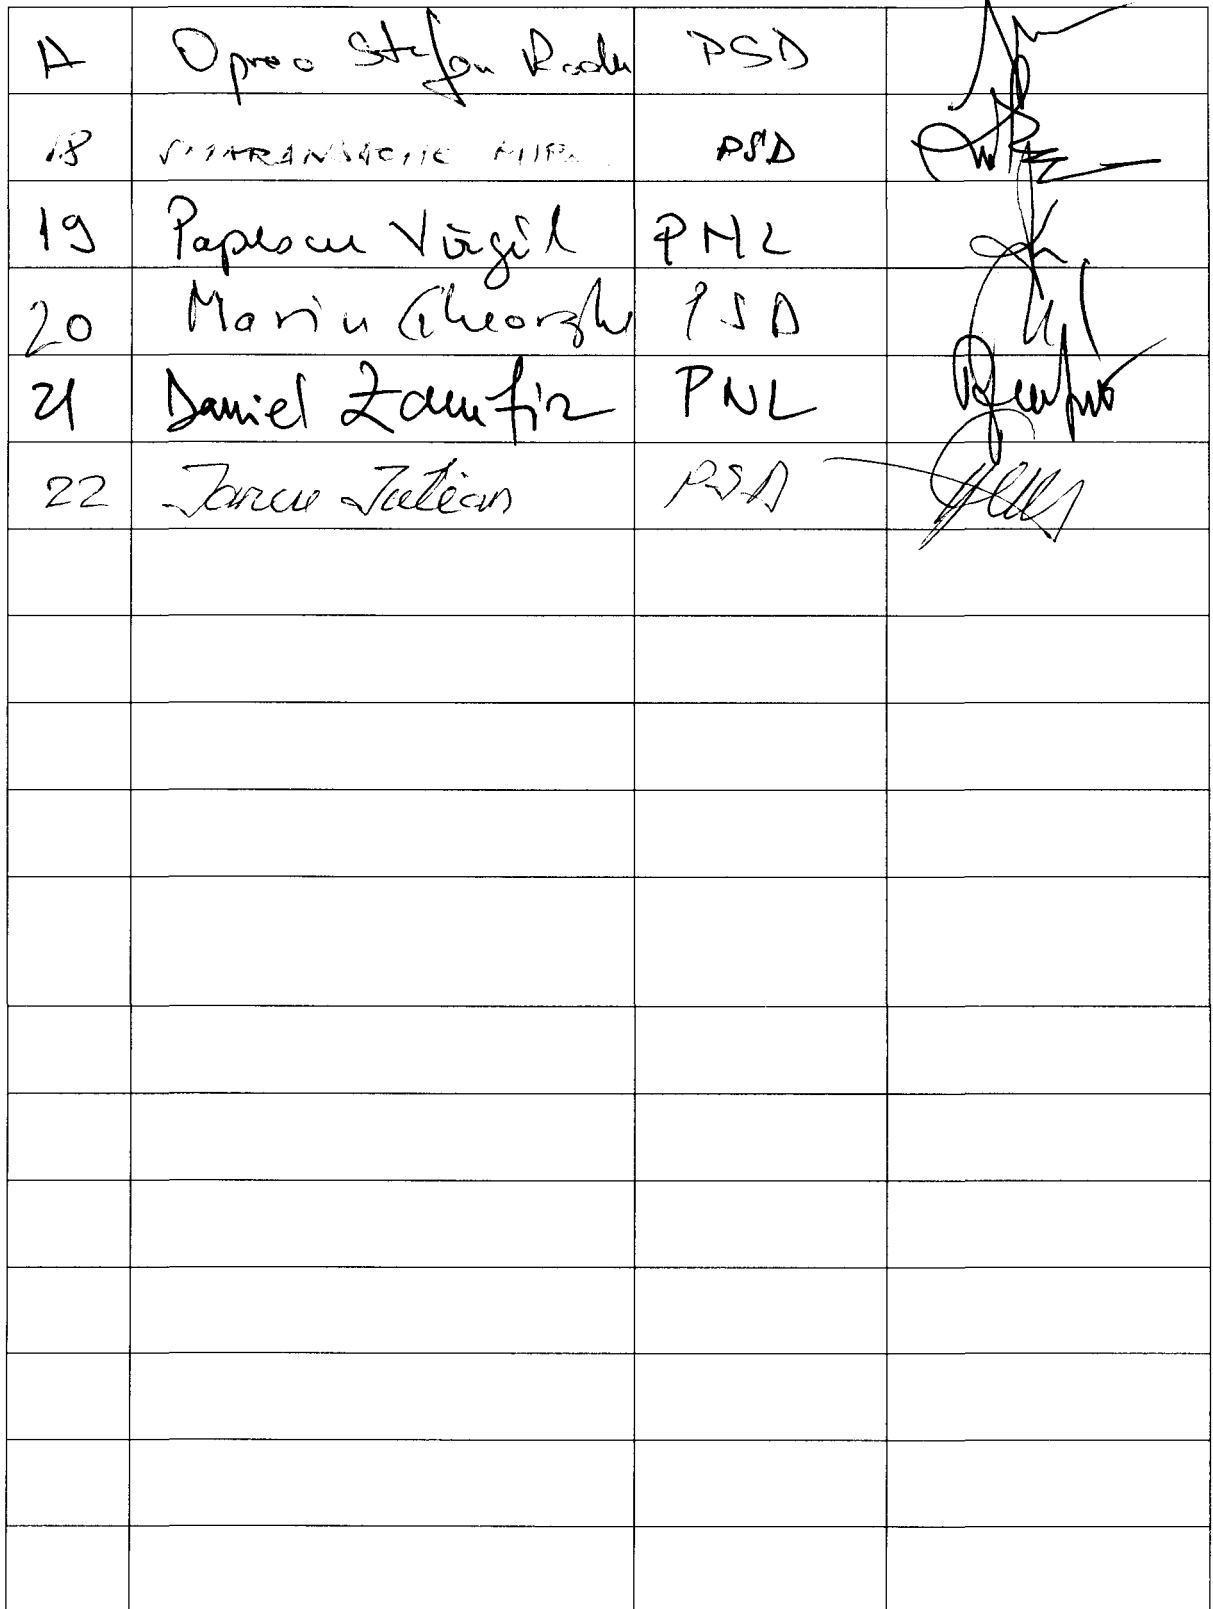 17 Oprea Stefan Radu PSD
18 SMARANDACHE PSD
19 Popescu Virgil PNL
20 Marin Gheorghe PSD
21 Daniel Zamfir PNL
22 Iancu Iulian PSD